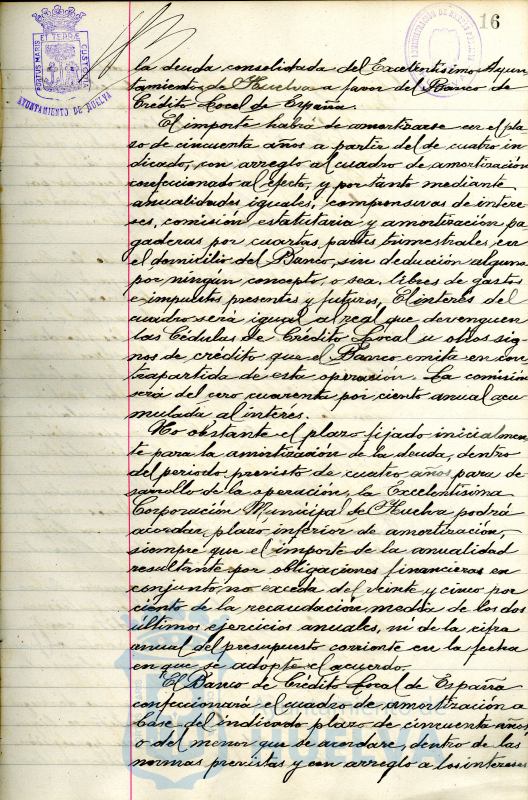 16
PORTUS MARIS ET TERRÆ CUSTODIA
AYUNTAMIENTO DE HUELVA
la deuda consolidada del Excelentísimo Ayun-
tamiento de Huelva a favor del Banco de
Crédito Local de España.
El importe habrá de amortizarse en el pla-
so de cincuenta años a partir del de cuatro in-
dicado, con arreglo al cuadro de amortización
confeccionado al efecto, y por tanto mediante
anualidades iguales, comprensivas de intere-
ses, comisión estatutaria y amortización pa-
gaderas por cuartas partes trimestrales en
el domicilio del Banco, sin deducción alguna
por ningún concepto, o sea, libres de gastos
e impuestos presentes y futuros. El interés del
cuadro será igual al real que devenguen
las Cédulas de Crédito Local u otros sig-
nos de crédito que el Banco emita en con-
trapartida de esta operación. La comisión
será del cero cuarenta por ciento anual acu-
mulada al interés.
No obstante el plazo fijado inicialmen-
te para la amortización de la deuda, dentro
del periodo previsto de cuatro años para de-
sarrollo de la operación, la Excelentísima
Corporación Municipal de Huelva podrá
acordar plazo inferior de amortización,
siempre que el importe de la anualidad
resultante por obligaciones financieras en
conjunto, no exceda del veinte y cinco por
ciento de la recaudación media de los dos
últimos ejercicios anuales, ni de la cifra
anual del presupuesto corriente en la fecha
en que se adopte el acuerdo.
El Banco de Crédito Local de España
confeccionará el cuadro de amortización a
base del indicado plazo de cincuenta años,
o del menor que se acordare, dentro de las
normas previstas y con arreglo a los intereses
HUELVA